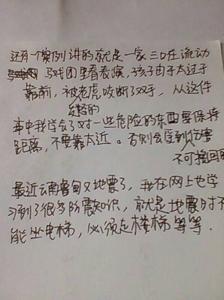 还有一个案例讲的就是一家三口在流动
马戏团里看表演，孩子由于太过于
靠前，被老虎咬断了双手，从这件
事中我学会了对一些危险的东西要保持
距离，不要靠太近。否则会受到伤害
不可挽回
最近云南省又地震了，我在网上也学
习到了很多防震知识，就是地震时不
能坐电梯，必须走楼梯等等。